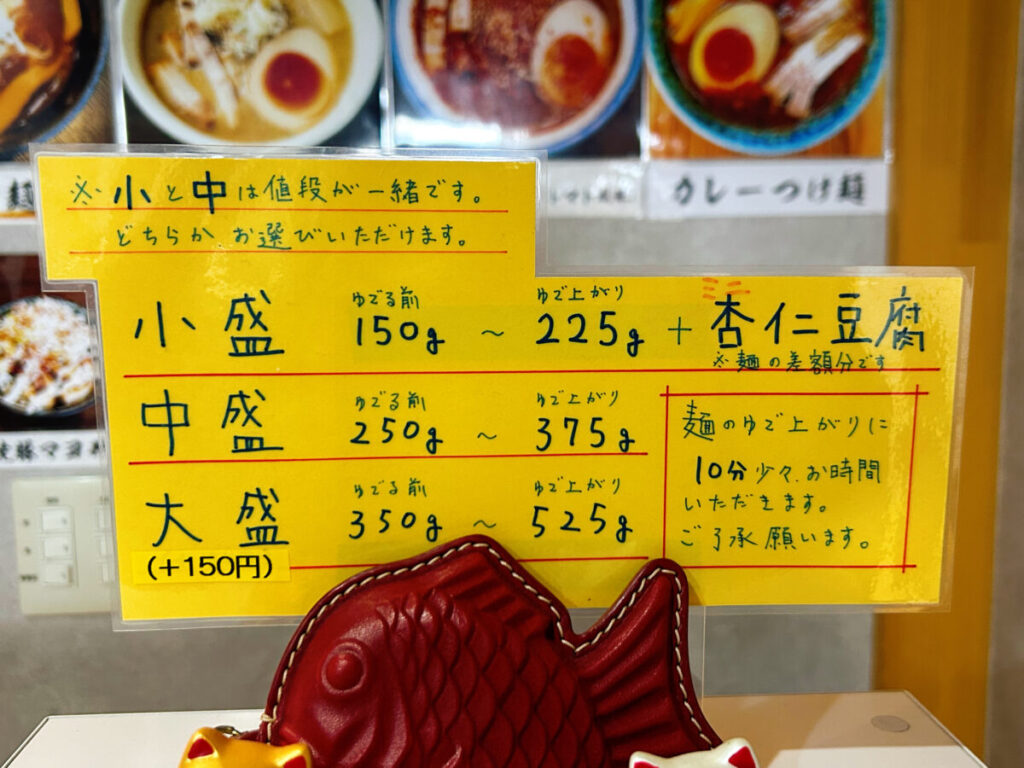 カレーつけ麺
※小と中は値段が一緒です。
どちらかお選びいただけます。
小盛 ゆでる前 150g ~ ゆで上がり 225g + ミニ 杏仁豆腐
※麺の差額分です
中盛 ゆでる前 250g ~ ゆで上がり 375g
大盛 ゆでる前 350g ~ ゆで上がり 525g
(+150円)
麺のゆで上がりに
10分少々、お時間
いただきます。
ご了承願います。